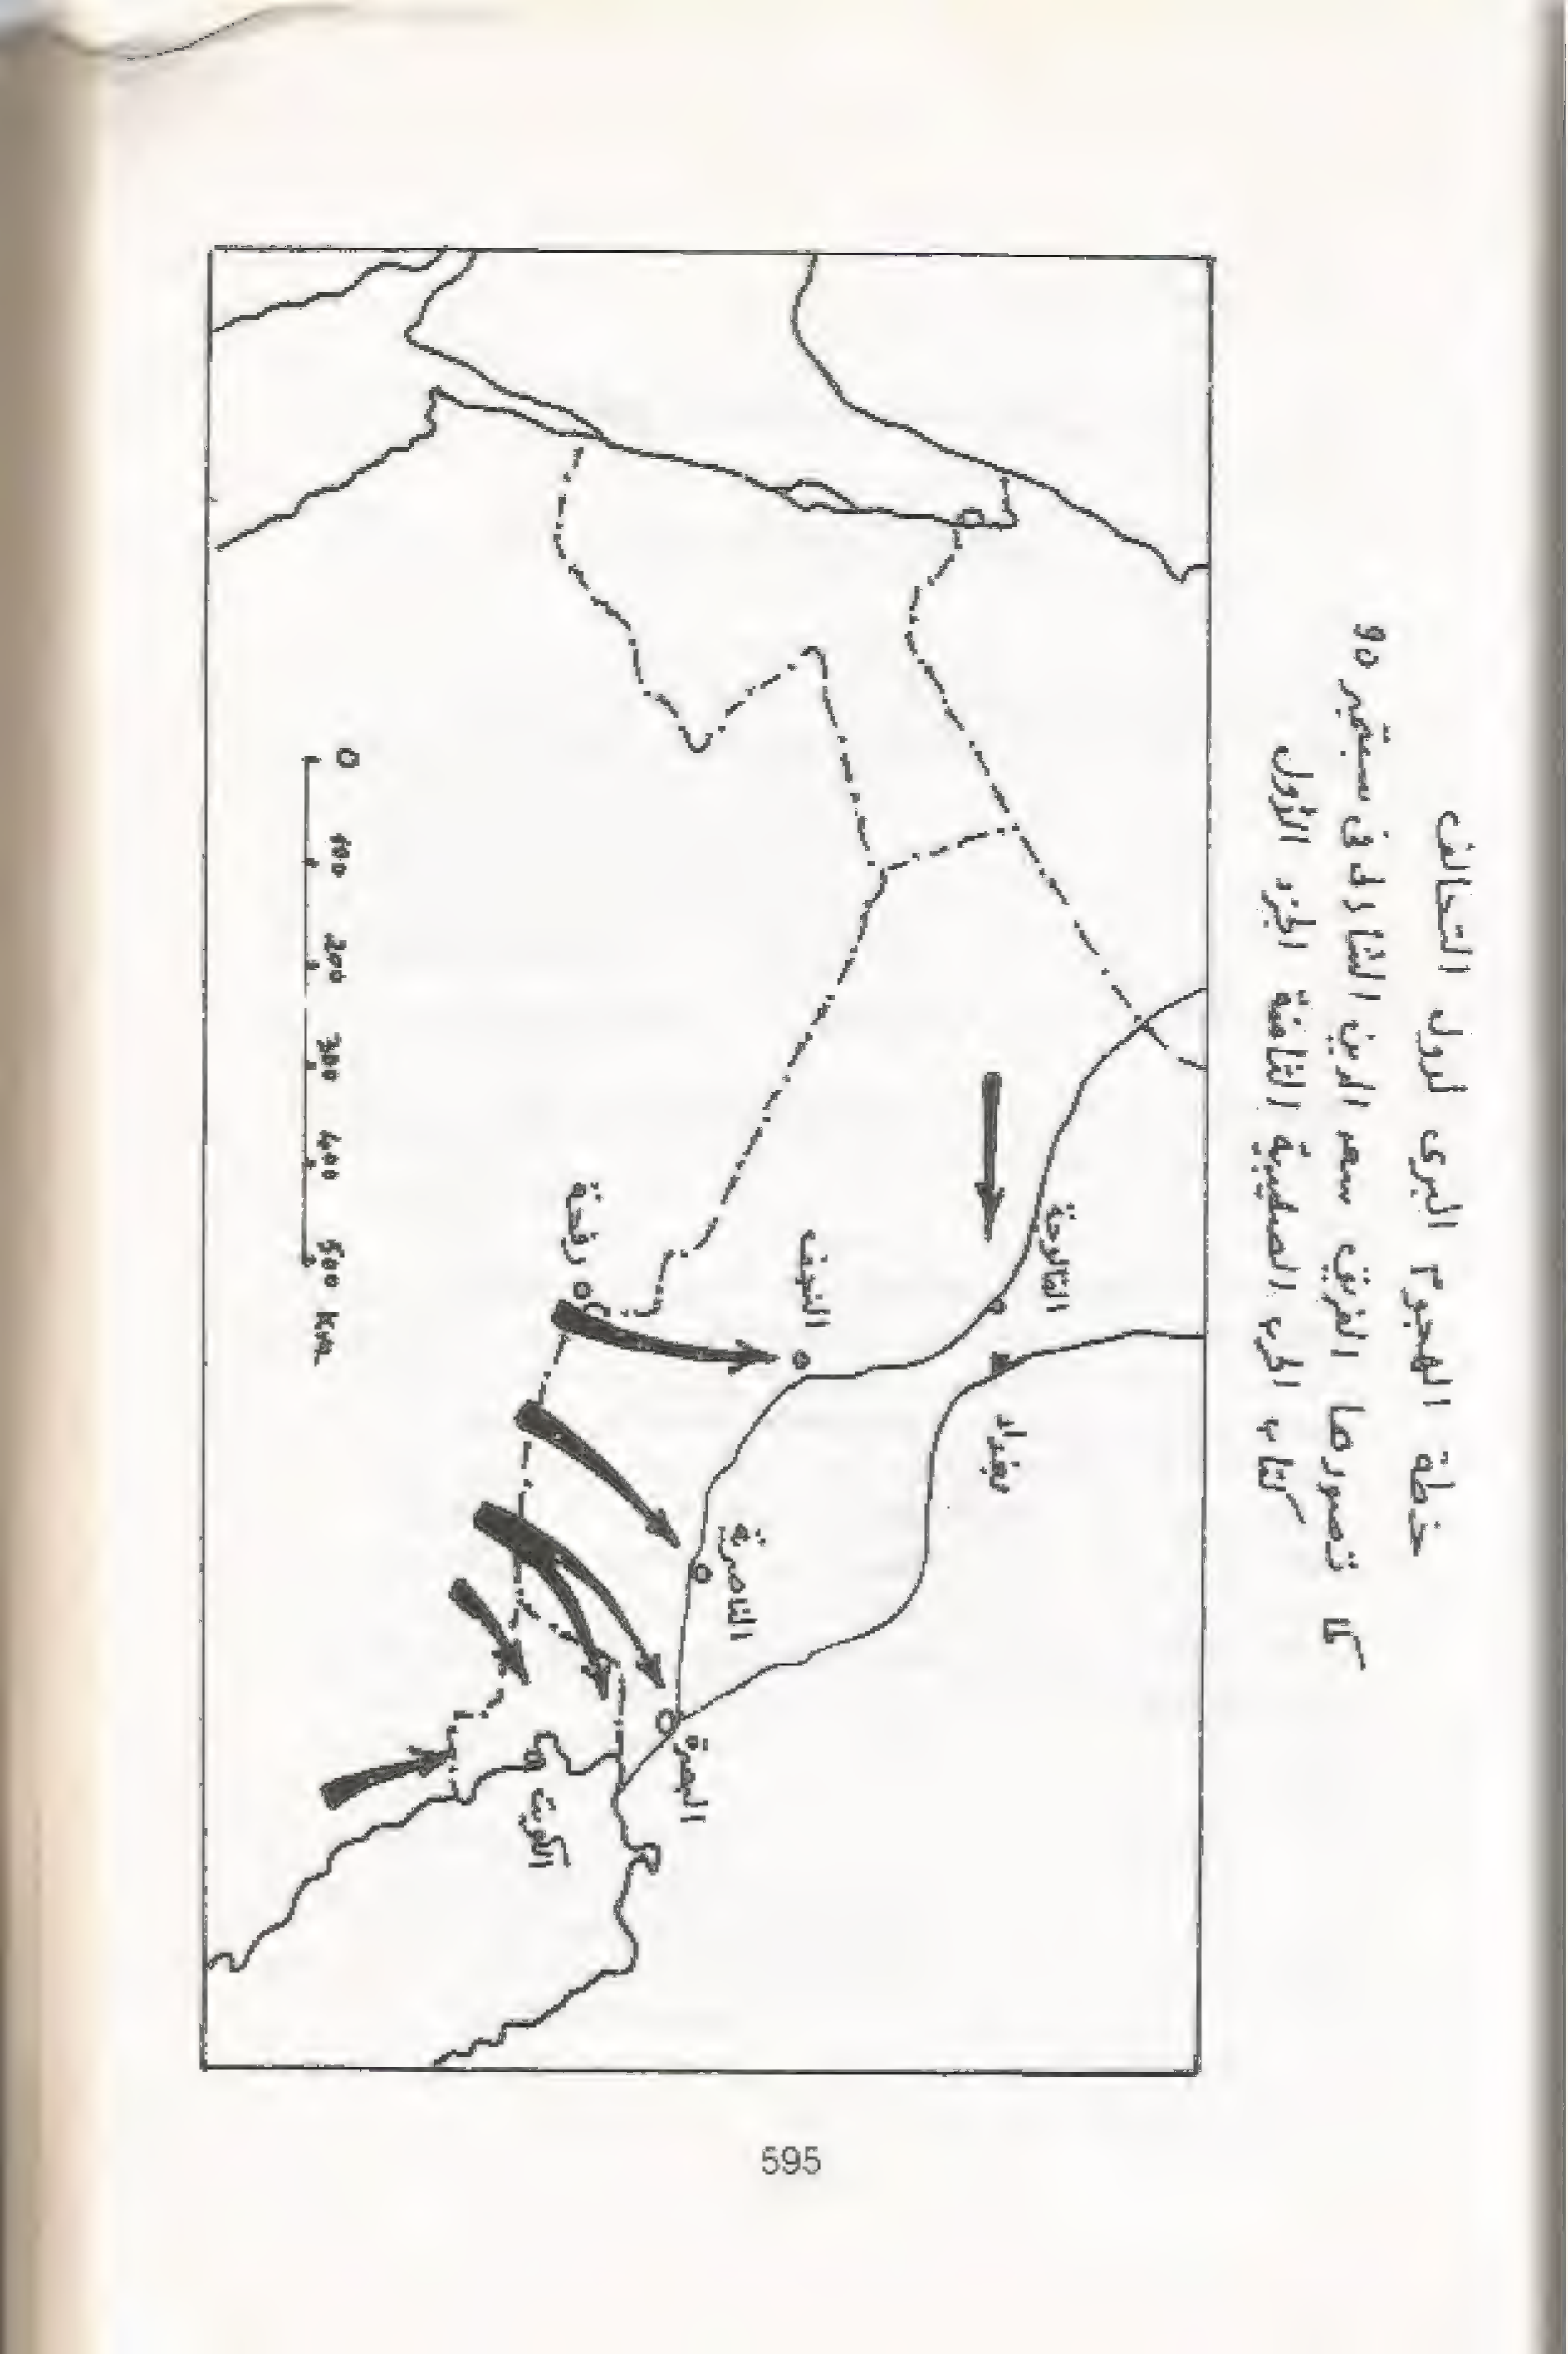 خطة الهجوم البرى لدول التحالف
كما تصورها الفريق سعد الدين الشاذلى فى سبتمبر ٩٥
كتاب الحرب الصليبية الثامنة الجزء الأول
الفالوجة
بغداد
النجف
الناصرية
البصرة
رفحة
الكويت
0 100 200 300 400 500 km
595